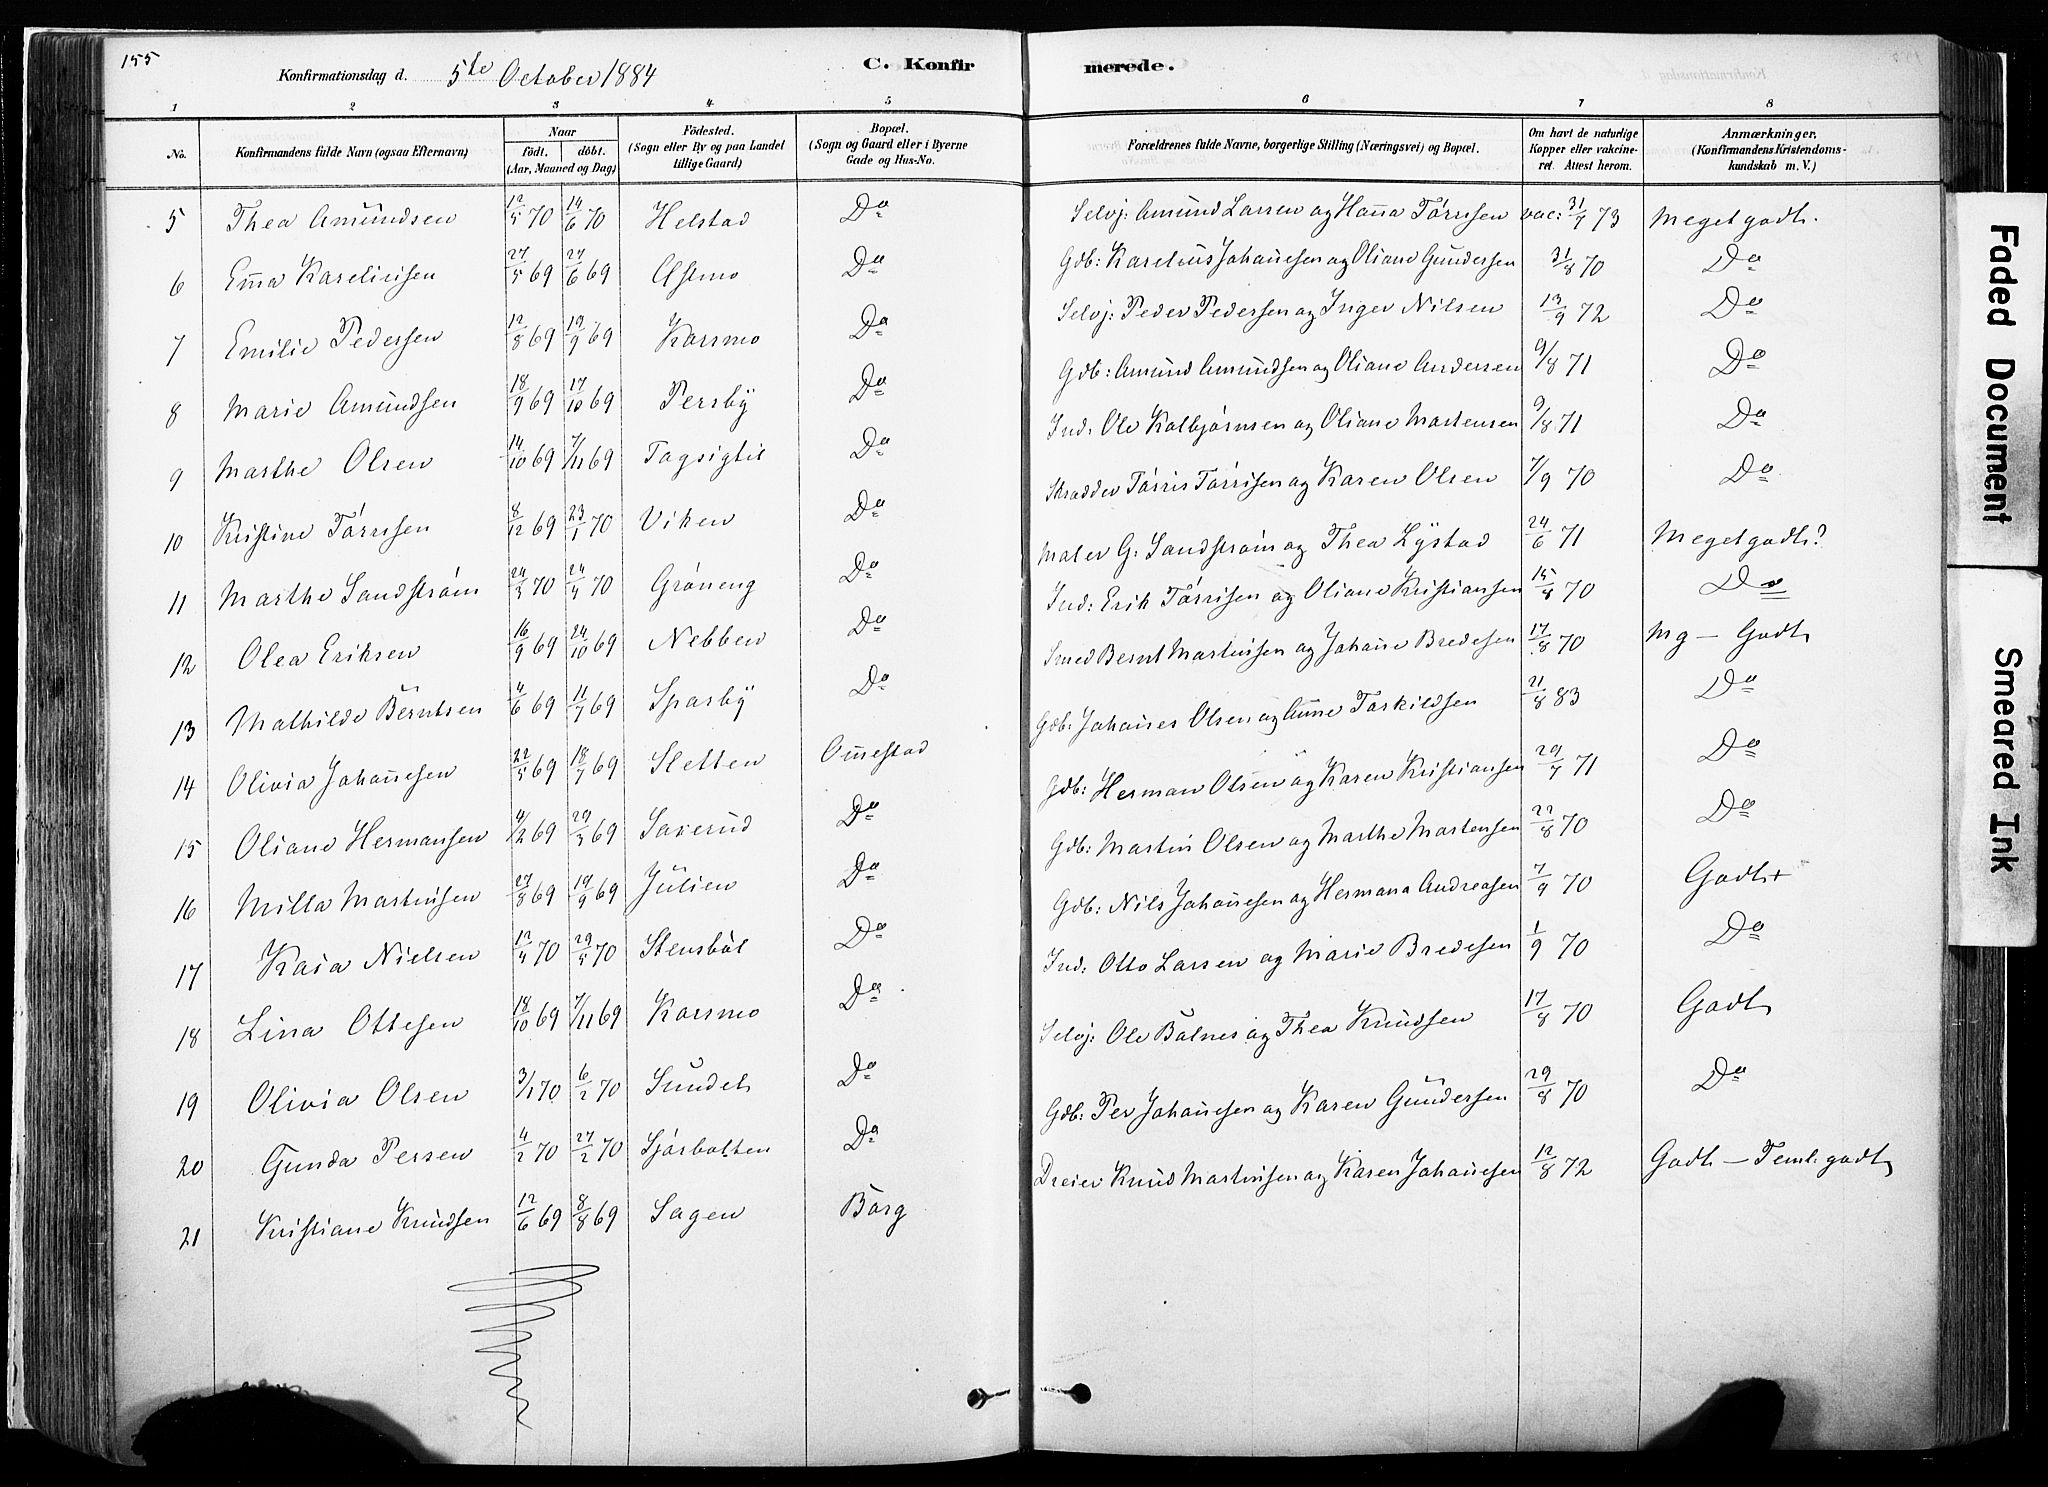 155
Konfirmationsdag d. 5te October 1884
C. Konfir merede.
1 2 3 4 5 6 7 8
No. Konfirmandens fulde Navn (ogsaa Efternavn) Naar födt. döbt. (Aar, Maaned og Dag) Födested. (Sogn eller By og paa Landet tillige Gaard) Bopæl. (Sogn og Gaard eller i Byerne Gade og Hus-No. Forældrenes fulde Navne, borgerlige Stilling (Næringsvei) og Bopæl. Om havt de naturlige Kopper eller vakcineret. Attest herom. Anmærkninger. (Konfirmandens Kristendomskundskab m. V.)
5 Thea Amundsen 12/5 70 14/6 70 Helstad Do Selvj: Amund Larsen og Hanna Tørrisen vac: 31/7 73 Meget godt.
6 Emma Karelinsen 27/5 69 27/6 69 Astmo Do Gdb: Karelius Johannesen og Oliane Gundersen 31/8 70 Do
7 Emilie Pedersen 12/8 69 19/9 69 Karsmo Do Selvj: Peder Pedersen og Inger Nilsen 13/9 72 Do
8 Marie Amundsen 18/9 69 17/10 69 Persby Do Gdb: Amund Amundsen og Oliane Andersen 9/8 71 Do
9 Marthe Olsen 14/10 69 7/11 69 Tagsigtil Do Ind: Ole Kolbjørnsen og Oliane Martensen 9/8 71 Do
10 Kristine Tørrisen 8/12 69 23/1 70 Viken Do Skrædder Tørris Tørrisen og Karen Olsen 7/9 70 Do
11 Marthe Sandstrøm 24/3 70 24/4 70 Grøneng Do Maler G: Sandstrøm og Thea Lystad 24/6 71 Meget godt?
12 Olea Eriksen 16/9 69 24/10 69 Nebben Do Ind: Erik Tørrisen og Oliane Kristiansen 15/8 70 Do
13 Mathilde Berntsen 4/6 69 11/7 69 Sparby Do Smed Bernt Martinsen og Johanne Bredesen 17/8 70 Mg - Godt
14 Olivia Johannesen 22/5 69 18/7 69 Sletten Onnestad Gdb: Johannes Olsen og Anne Torkildsen 21/8 83 Do
15 Oliane Hermansen 4/2 69 29/3 69 Saxerud Do Gdb: Herman Olsen og Karen Kristiansen 20/7 71 Do
16 Milla Martinsen 27/8 69 19/9 69 Julien Do Gdb: Martin Olsen og Marthe Martensen 22/8 70 Do
17 Kaia Nielsen 12/4 70 29/5 70 Stensbøl Do Gdb: Nils Johannesen og Hermana Andreasen 7/9 70 Godt+
18 Lina Ottesen 18/10 69 7/11 69 Karsmo Do Ind: Otto Larsen og Marie Bredesen 1/9 70 Do
19 Olivia Olsen 3/1 70 6/2 70 Sundet Do Selvj: Ole Bølnes og Thea Knudsen 17/8 70 Godt
20 Gunda Persen 4/2 70 27/2 70 Sjørbotten Do Gdb: Per Johannesen og Karen Gundersen 29/8 70 Do
21 Kristiane Knudsen 12/6 69 8/8 69 Sagen Borg Dreier Knud Martinsen og Karen Johannesen 12/8 72 Godt - Teml: godt
Faded Document
Smeared Ink